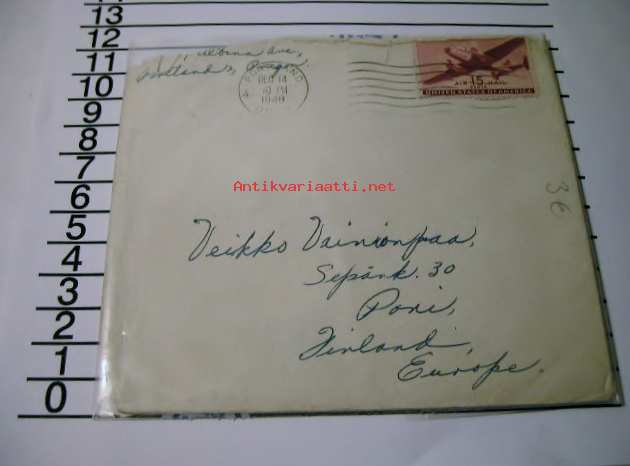 14
13
12
11
10
9
8
7
6
5
4
3
2
1
0
Albina Ave,
Portland, Oregon.
PORTLAND
DEC 14
PM
15
AIR MAIL
UNITED STATES OF AMERICA
Antikvariaatti.net
3€
Veikko Vainionpaa,
Sepänk. 30
Pori,
Finland,
Europe.